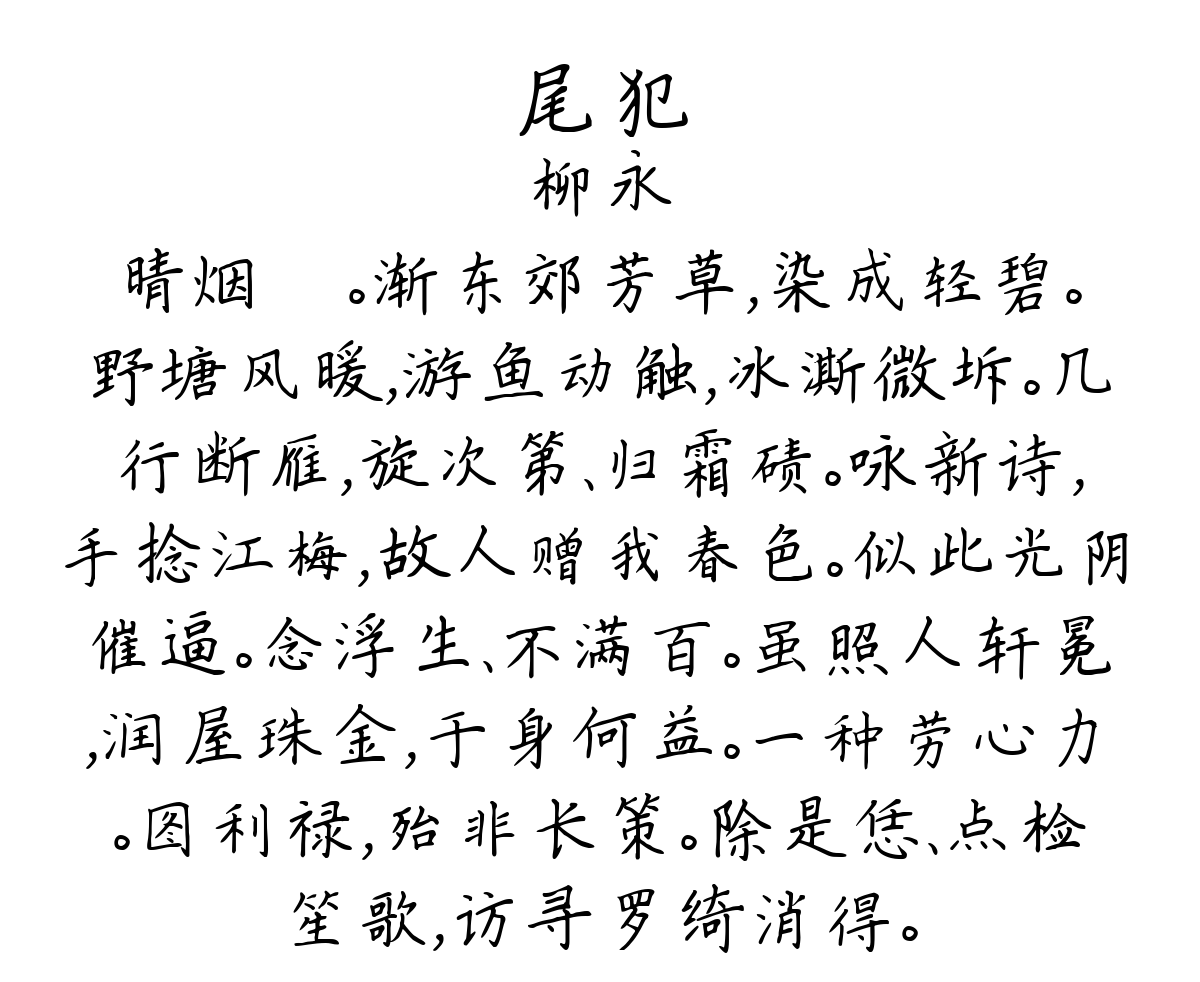 尾犯
柳永
晴烟 。渐东郊芳草,染成轻碧。
野塘风暖,游鱼动触,冰澌微坼。几
行断雁,旋次第、归霜碛。咏新诗,
手捻江梅,故人赠我春色。似此光阴
催逼。念浮生、不满百。虽照人轩冕
,润屋珠金,于身何益。一种劳心力
。图利禄,殆非长策。除是恁、点检
笙歌,访寻罗绮消得。